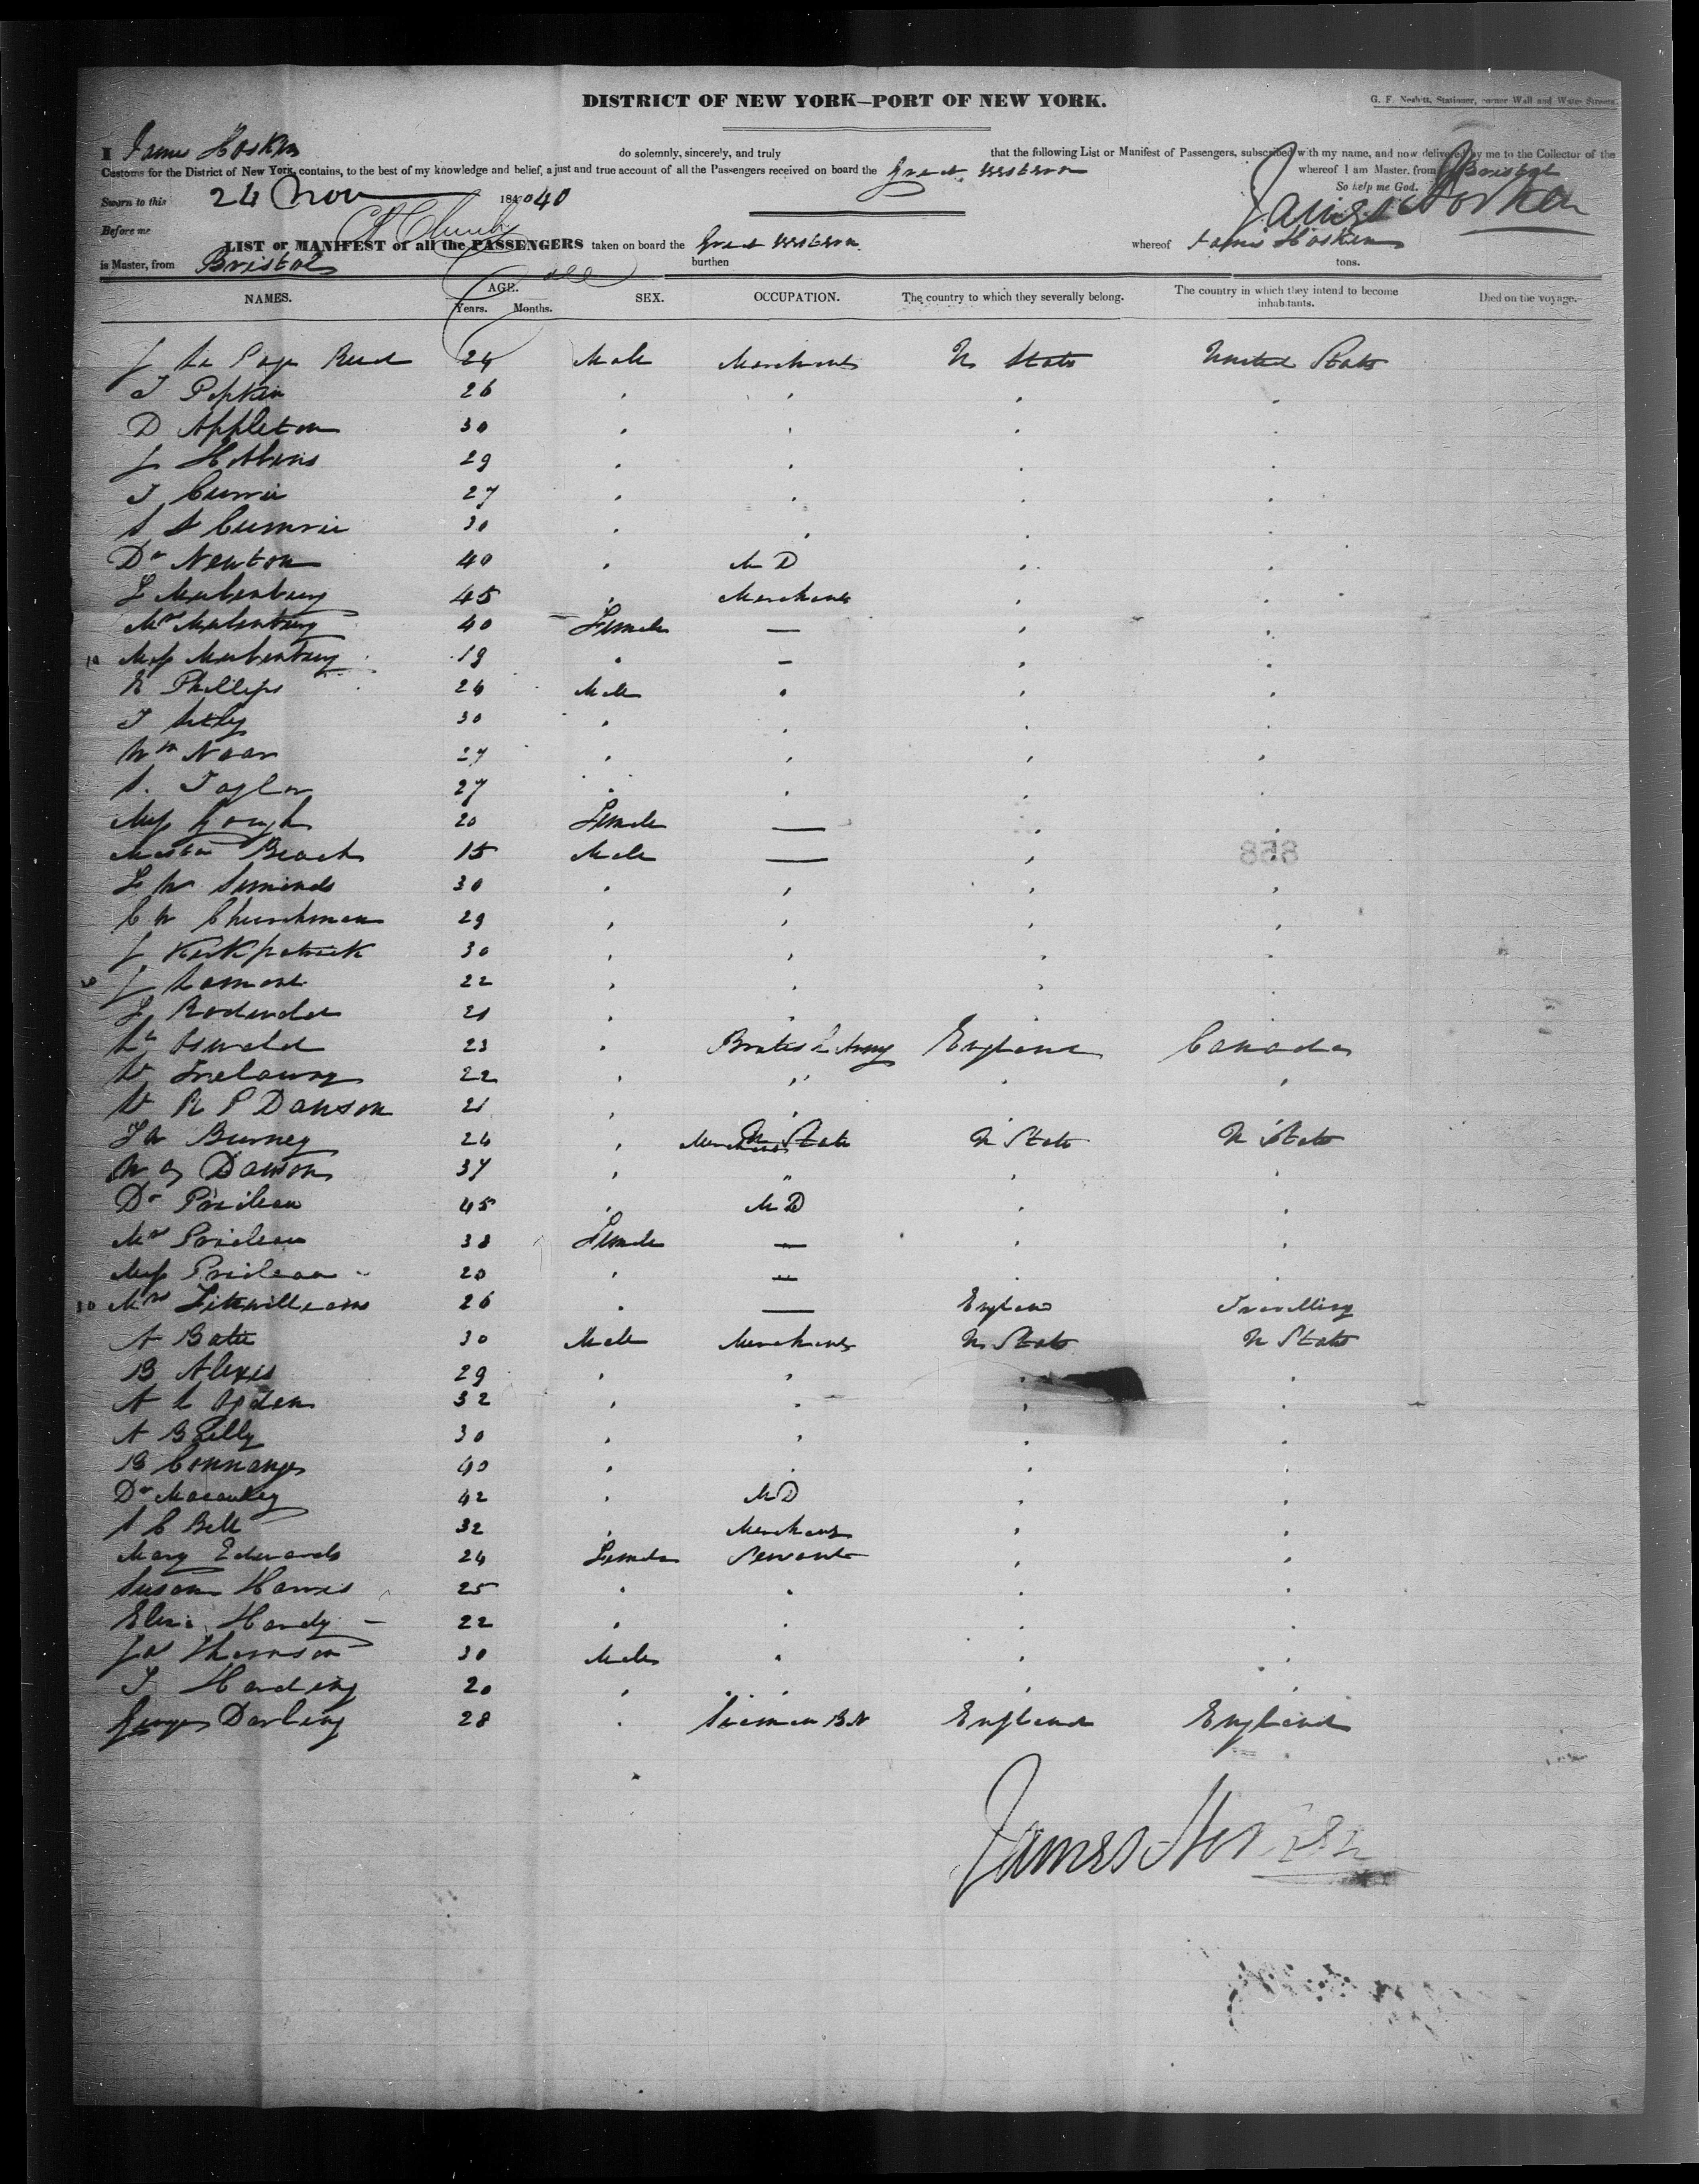 DISTRICT OF NEW YORK—PORT OF NEW YORK.
G. F. Nesbitt, Stationer, corner Wall and Water Streets.
I James Hosken do solemnly, sincerely, and truly that the following List or Manifest of Passengers, subscribed with my name, and now delivered by me to the Collector of the
Customs for the District of New York, contains, to the best of my knowledge and belief, a just and true account of all the Passengers received on board the Great Western whereof I am Master, from Bristol
So help me God.
Sworn to this 24 Nov 184040
James Hosken
Before me
LIST or MANIFEST of all the PASSENGERS taken on board the Great Western whereof James Hosken
is Master, from Bristol burthen tons.
NAMES. AGE. Years. Months. SEX. OCCUPATION. The country to which they severally belong. The country in which they intend to become inhabitants. Died on the voyage.
J Le Page Reed 24 Male Merchant U State United State
T Popkin 26
D Appleton 30
J Hobbins 29
T Currie 27
30
Dr Newton 40 M D
45 Merchant
Mrs 40 Female —
10 Miss 19 " —
Phillips 24 Male
T 30
Wm Noar 27
S. Taylor 27
Miss Gough 20 Female —
Master Beach 15 Male —
858
L W Simonds 30
C W Churchman 29
J Kirkpatrick 30
J Lamont 22
21
Lt Oswald 23 British Army England Canada
Lt Trelawny 22
Lt R P Dawson 21
Burney 24 Merchant U State U State U State
W G Dawson 37
Dr Prileau 45 M D
Mrs Prileau 38 Female —
Miss Prileau 20 —
30 Mrs Fitzwilliams 26 — England Travelling
A Batie 30 Male Merchant U State U State
B Alexis 29
A L Ogden 32
A Bailly 30
B 40
Dr Macaulay 42 M D
S C Bell 32 Merchant
Mary Edwards 24 Female Servant
Susan Harris 25
Eliza Hardy 22
Jas Thomson 30 Male
T Harding 20
George Darling 28 Seaman B N England England
James Hosken